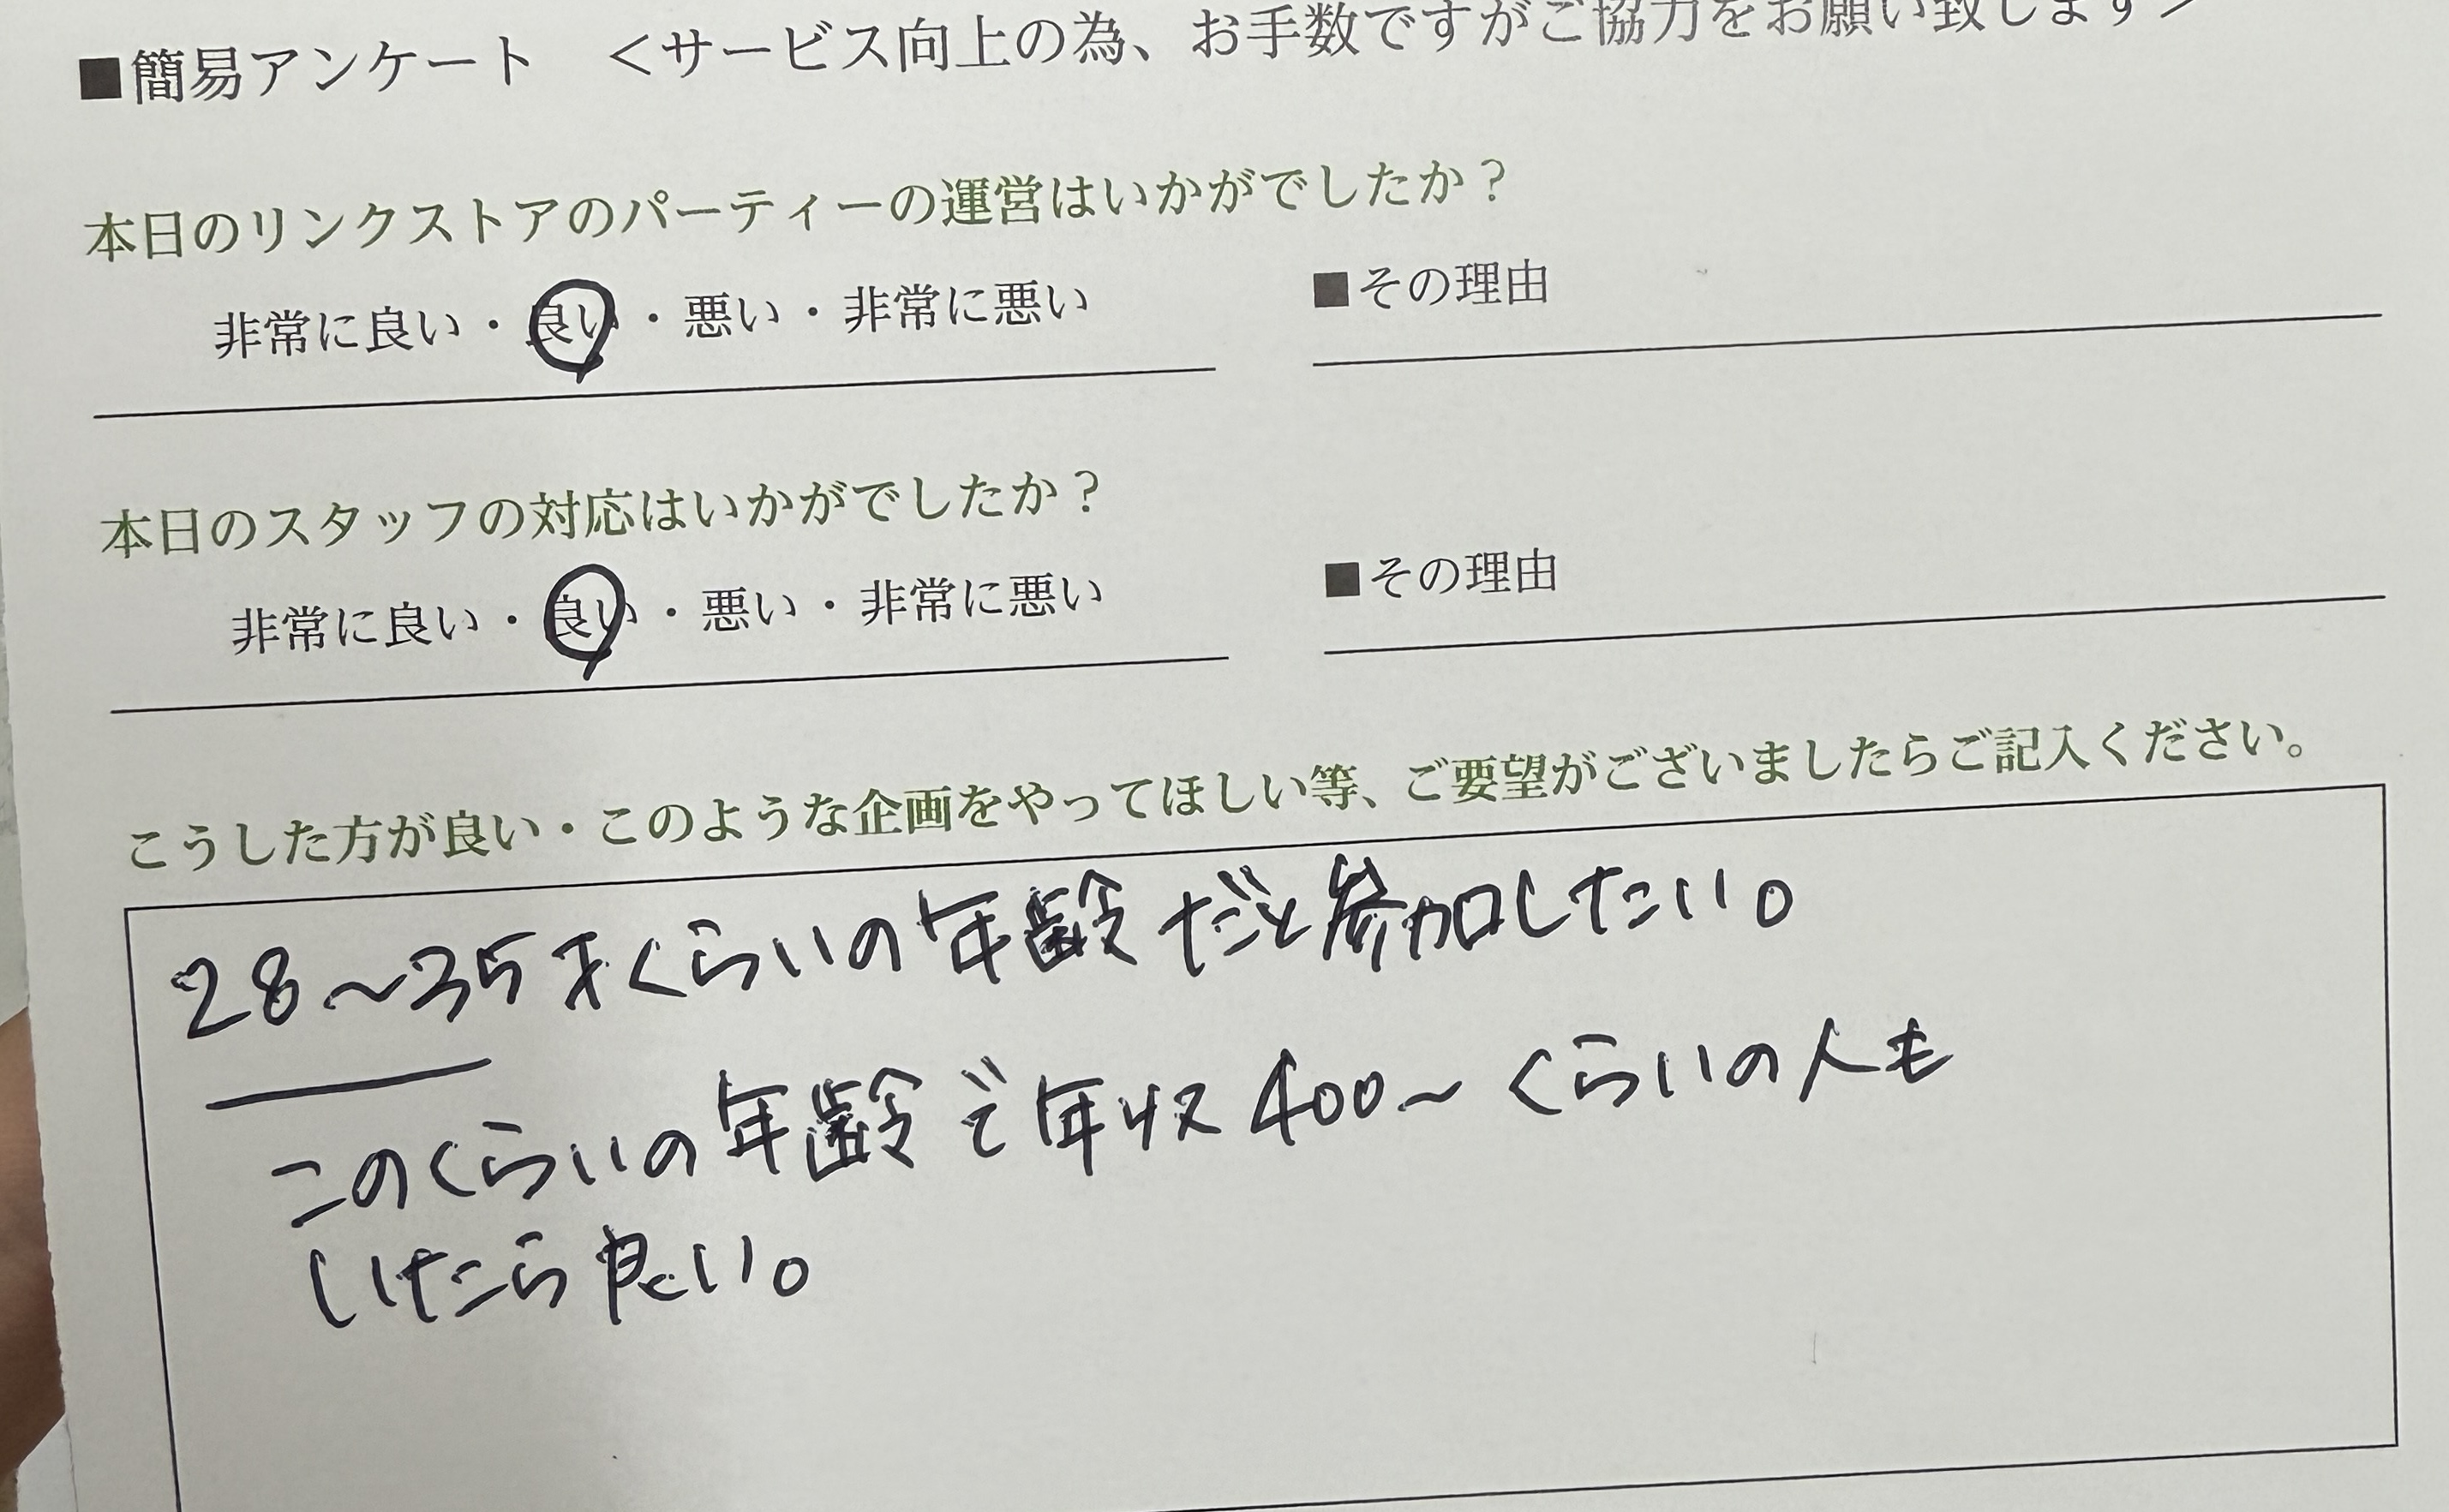 ■簡易アンケート　＜サービス向上の為、お手数ですがご協力をお願い致します＞
本日のリンクストアのパーティーの運営はいかがでしたか？
非常に良い・良い・悪い・非常に悪い　■その理由
本日のスタッフの対応はいかがでしたか？
非常に良い・良い・悪い・非常に悪い　■その理由
こうした方が良い・このような企画をやってほしい等、ご要望がございましたらご記入ください。
28〜35才くらいの年齢だと参加したい。
このくらいの年齢で年収400〜くらいの人も
いたら良い。